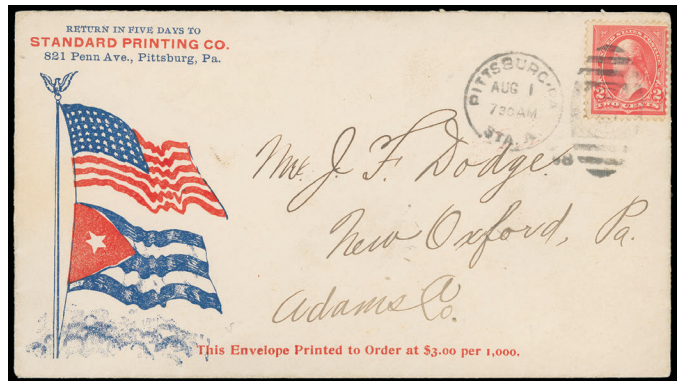 RETURN IN FIVE DAYS TO
STANDARD PRINTING CO.
821 Penn Ave., Pittsburg, Pa.
PITTSBURG, PA.
AUG 1
730 AM
STA. A
98
2 2
TWO CENTS
Mr. J. F. Dodge.
New Oxford, Pa.
Adams Co.
This Envelope Printed to Order at $3.00 per 1,000.